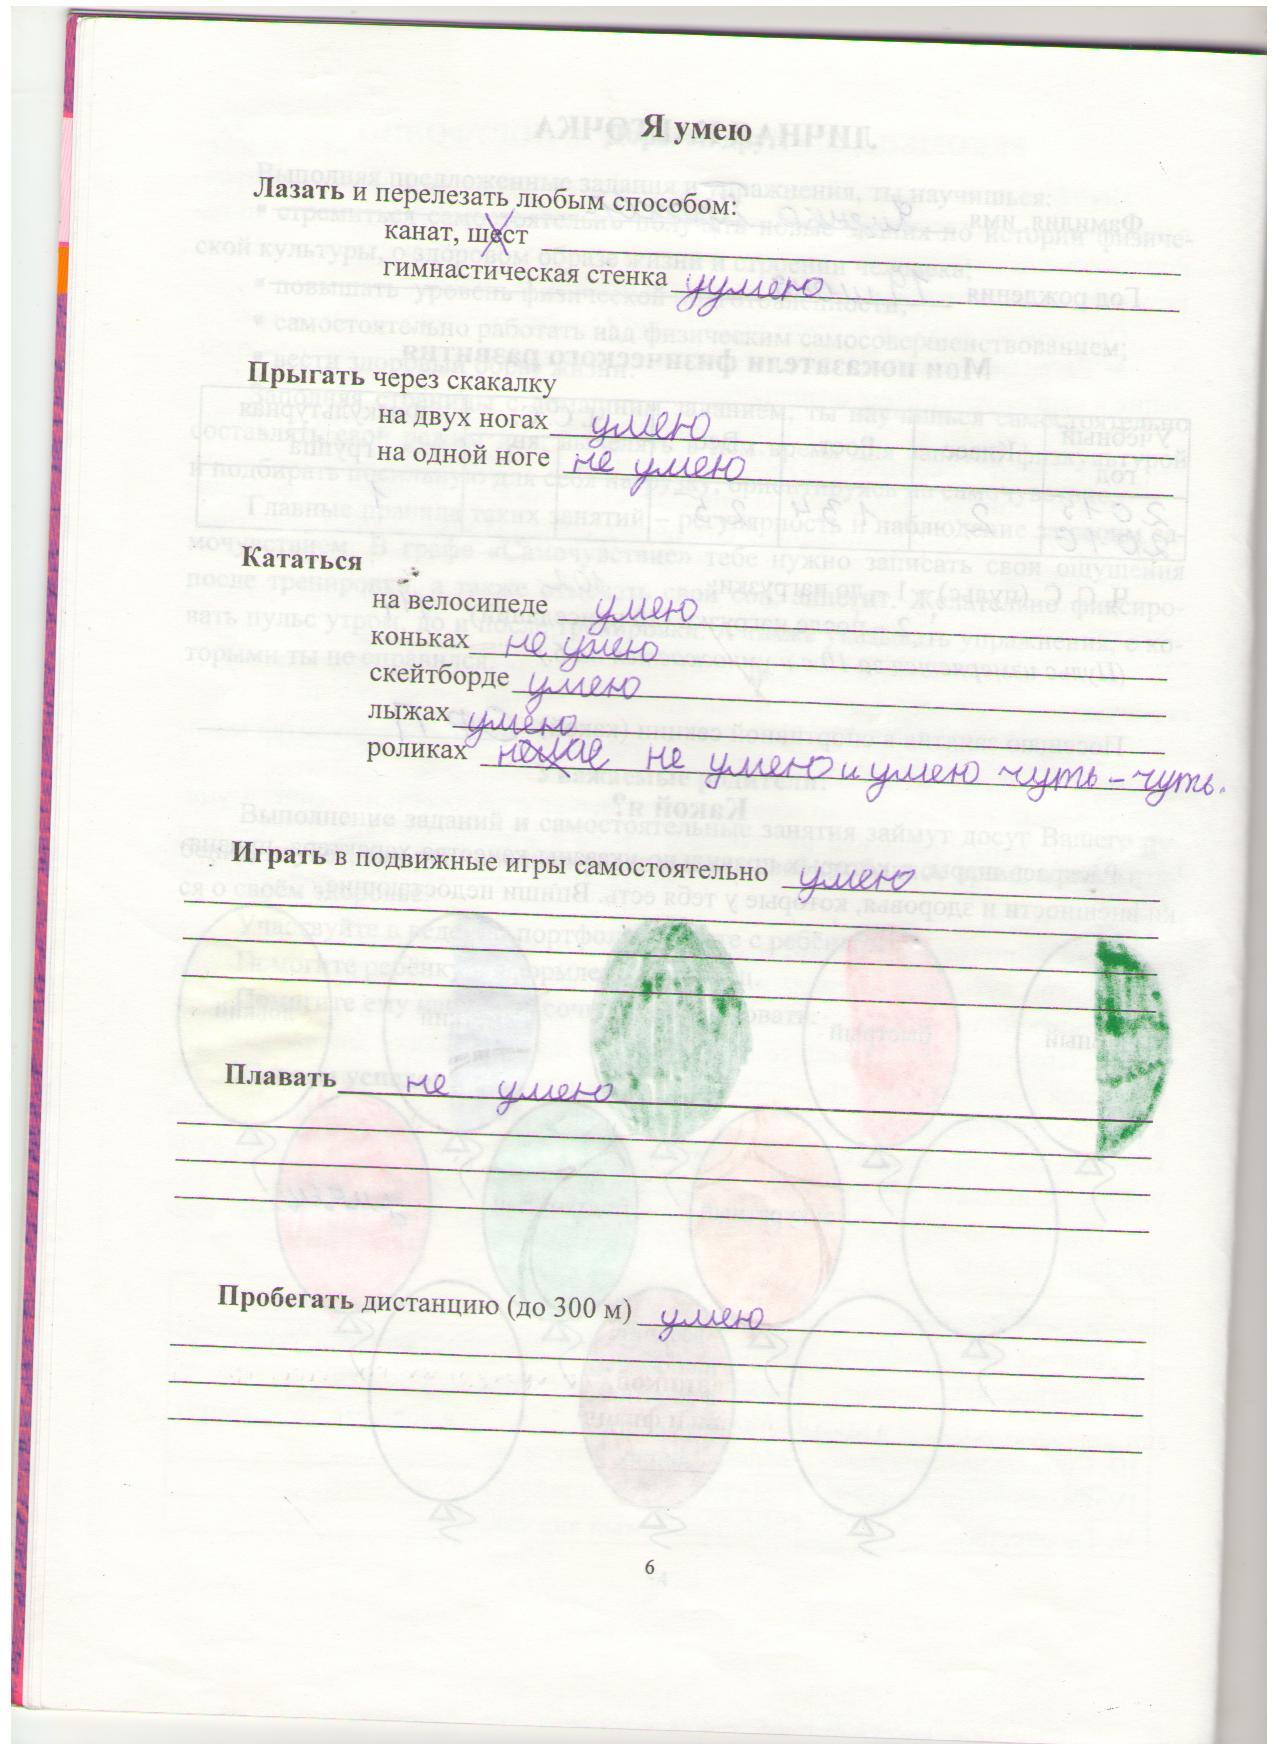 Я умею
Лазать и перелезать любым способом:
канат, шест
гимнастическая стенка уумею
Прыгать через скакалку
на двух ногах умею
на одной ноге не умею
Кататься
на велосипеде умею
коньках не умею
скейтборде умею
лыжах умею
роликах не умею и умею чуть-чуть.
Играть в подвижные игры самостоятельно умею
Плавать не умею
Пробегать дистанцию (до 300 м) умею
6